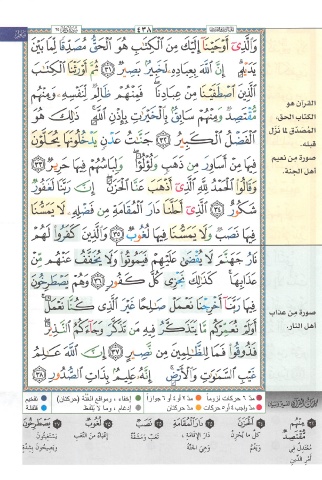 ٤٣٨
وَالَّذِي أَوْحَيْنَا إِلَيْكَ مِنَ الْكِتَابِ هُوَ الْحَقُّ مُصَدِّقًا لِّمَا بَيْنَ
يَدَيْهِ إِنَّ اللَّهَ بِعِبَادِهِ لَخَبِيرٌ بَصِيرٌ ﴿٣١﴾ ثُمَّ أَوْرَثْنَا الْكِتَابَ
الَّذِينَ اصْطَفَيْنَا مِنْ عِبَادِنَا فَمِنْهُمْ ظَالِمٌ لِّنَفْسِهِ وَمِنْهُم
مُّقْتَصِدٌ وَمِنْهُمْ سَابِقٌ بِالْخَيْرَاتِ بِإِذْنِ اللَّهِ ذَٰلِكَ هُوَ
الْفَضْلُ الْكَبِيرُ ﴿٣٢﴾ جَنَّاتُ عَدْنٍ يَدْخُلُونَهَا يُحَلَّوْنَ
فِيهَا مِنْ أَسَاوِرَ مِن ذَهَبٍ وَلُؤْلُؤًا وَلِبَاسُهُمْ فِيهَا حَرِيرٌ ﴿٣٣﴾
وَقَالُوا الْحَمْدُ لِلَّهِ الَّذِي أَذْهَبَ عَنَّا الْحَزَنَ إِنَّ رَبَّنَا لَغَفُورٌ
شَكُورٌ ﴿٣٤﴾ الَّذِي أَحَلَّنَا دَارَ الْمُقَامَةِ مِن فَضْلِهِ لَا يَمَسُّنَا
فِيهَا نَصَبٌ وَلَا يَمَسُّنَا فِيهَا لُغُوبٌ ﴿٣٥﴾ وَالَّذِينَ كَفَرُوا لَهُمْ
نَارُ جَهَنَّمَ لَا يُقْضَىٰ عَلَيْهِمْ فَيَمُوتُوا وَلَا يُخَفَّفُ عَنْهُم مِّنْ
عَذَابِهَا كَذَٰلِكَ نَجْزِي كُلَّ كَفُورٍ ﴿٣٦﴾ وَهُمْ يَصْطَرِخُونَ
فِيهَا رَبَّنَا أَخْرِجْنَا نَعْمَلْ صَالِحًا غَيْرَ الَّذِي كُنَّا نَعْمَلُ
أَوَلَمْ نُعَمِّرْكُم مَّا يَتَذَكَّرُ فِيهِ مَن تَذَكَّرَ وَجَاءَكُمُ النَّذِيرُ
فَذُوقُوا فَمَا لِلظَّالِمِينَ مِن نَّصِيرٍ ﴿٣٧﴾ إِنَّ اللَّهَ عَالِمُ
غَيْبِ السَّمَاوَاتِ وَالْأَرْضِ إِنَّهُ عَلِيمٌ بِذَاتِ الصُّدُورِ ﴿٣٨﴾
القرآن هو
الكتاب الحق،
المصدق لما نزل
قبله.
صورة من نعيم
أهل الجنة.
صورة من عذاب
أهل النار.
مد ٦ حركات لزوماً
مد ٢ أو ٤ أو ٦ جوازاً
إخفاء، ومواقع الغنة (حركتان)
تفخيم
مد واجب ٤ أو ٥ حركات
مد حركتان
إدغام، وما لا يلفظ
قلقلة